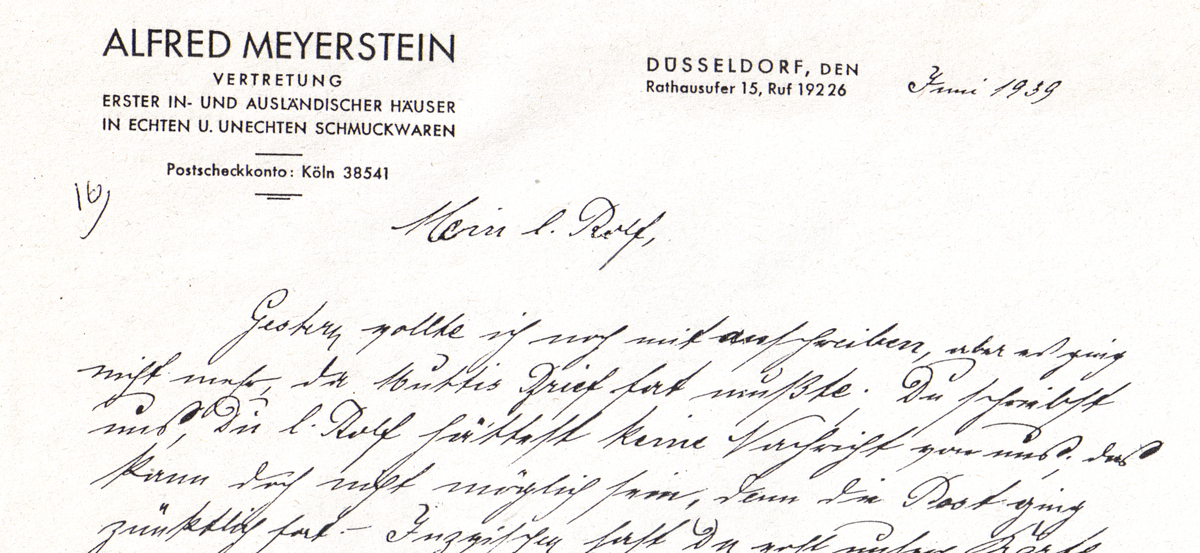 ALFRED MEYERSTEIN
VERTRETUNG
ERSTER IN- UND AUSLÄNDISCHER HÄUSER
IN ECHTEN U. UNECHTEN SCHMUCKWAREN
Postscheckkonto: Köln 38541
DÜSSELDORF, DEN
Rathausufer 15, Ruf 19226
Juni 1939
10)
Mein l. Rolf,
Gestern wollte ich noch mit anschreiben, aber es ging
nicht mehr, da Muttis Brief fort mußte. Du schreibst
uns, Du l. Rolf hättest keine Nachricht von uns, das
kann doch nicht möglich sein, denn die Post ging
pünktlich fort. – Inzwischen hast Du wohl unsern